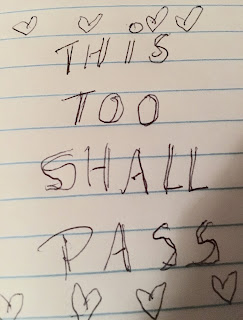 THiS
TOO
SHALL
PASS